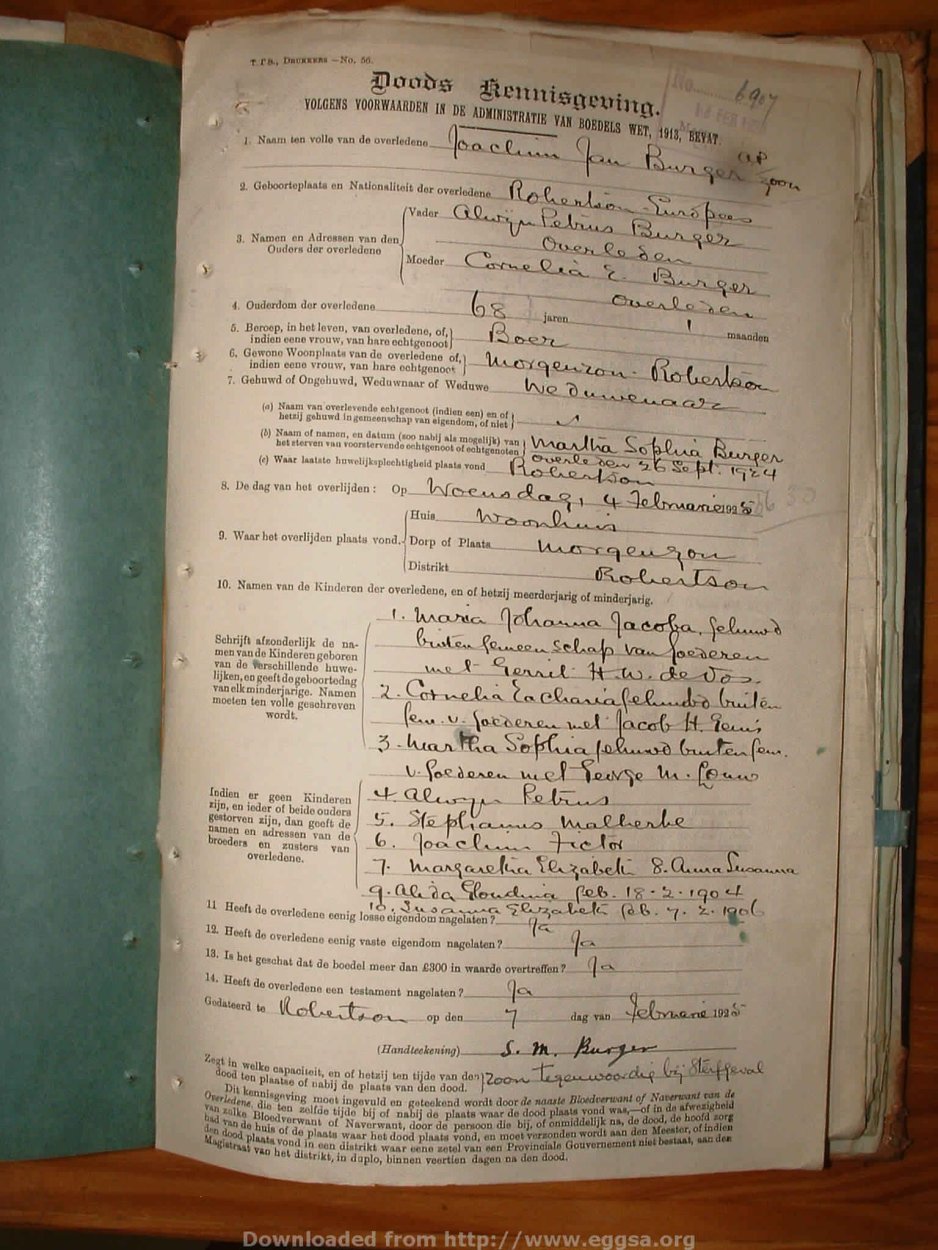 T. P. B., DRUKKERS —No. 56.
No. 6907
Doods Kennisgeving.
VOLGENS VOORWAARDEN IN DE ADMINISTRATIE VAN BOEDELS WET, 1913, BEVAT.
1. Naam ten volle van de overledene Joachim Jan Burger AP zoon
2. Geboorteplaats en Nationaliteit der overledene Robertson Europees
3. Namen en Adressen van den Ouders der overledene
Vader Alwijn Petrus Burger
Overleden
Moeder Cornelia E. Burger
Overleden
4. Ouderdom der overledene 68 jaren 1 maanden
5. Beroep, in het leven, van overledene, of, indien eene vrouw, van hare echtgenoot Boer
6. Gewone Woonplaats van de overledene of, indien eene vrouw, van hare echtgenoot Morgenzon - Robertson
7. Gehuwd of Ongehuwd, Weduwnaar of Weduwe Weduwenaar
(a) Naam van overlevende echtgenoot (indien een) en of hetzij gehuwd in gemeenschap van eigendom, of niet
(b) Naam of namen, en datum (zoo nabij als mogelijk) van het sterven van voorstervende echtgenoot of echtgenoten Martha Sophia Burger
overleden 26 Sept. 1924
(c) Waar laatste huwelijksplechtigheid plaats vond Robertson
8. De dag van het overlijden: Op Woensdag, 4 Februarie 1925
9. Waar het overlijden plaats vond.
Huis Woonhuis
Dorp of Plaats Morgenzon
Distrikt Robertson
10. Namen van de Kinderen der overledene, en of hetzij meerderjarig of minderjarig.
Schrijft afzonderlijk de namen van de Kinderen geboren van de verschillende huwelijken, en geeft de geboortedag van elk minderjarige. Namen moeten ten volle geschreven wordt.
1. Maria Johanna Jacoba, gehuwd
buiten Gemeenschap van Goederen
met Gerrit H. W. de Vos.
2. Cornelia Zacharia gehuwd buiten
Gem. v. Goederen met Jacob H.
3. Martha Sophia gehuwd buiten Gem.
v. Goederen met George M. Louw
Indien er geen Kinderen zijn, en ieder of beide ouders gestorven zijn, dan geeft de namen en adressen van de broeders en zusters van overledene.
4. Alwyn Petrus
5. Stephanus Malherbe
6. Joachim Fictor
7. Margaretha Elizabeth 8. Anna Susanna
9. Alida Gloudina geb. 18-2-1904
10. Susanna Elizabeth geb. 7.2.1906
11 Heeft de overledene eenig losse eigendom nagelaten? Ja
12. Heeft de overledene eenig vaste eigendom nagelaten? Ja
13. Is het geschat dat de boedel meer dan £300 in waarde overtreffen? Ja
14. Heeft de overledene een testament nagelaten? Ja
Gedateerd te Robertson op den 7 dag van Februarie 1925
(Handteekening) S. M. Burger
Zegt in welke capaciteit, en of hetzij ten tijde van den dood ten plaatse of nabij de plaats van den dood. Zoon tegenwoordig bij Sterfgeval
Dit kennisgeving moet ingevuld en geteekend wordt door de naaste Bloedverwant of Naverwant van de
Overledene, die ten zelfde tijde bij of nabij de plaats waar de dood plaats vond was,—of in de afwezigheid
van zulke Bloedverwant of Naverwant, door de persoon die bij, of onmiddelijk na, de dood, de hoofd zorg
had van de huis of de plaats waar het dood plaats vond, en moet verzonden wordt aan den Meester, of indien
den dood plaats vond in een distrikt waar eene zetel van een Provinciale Gouvernement niet bestaat, aan den
Magistraat van het distrikt, in duplo, binnen veertien dagen na den dood.
Downloaded from http://www.eggsa.org